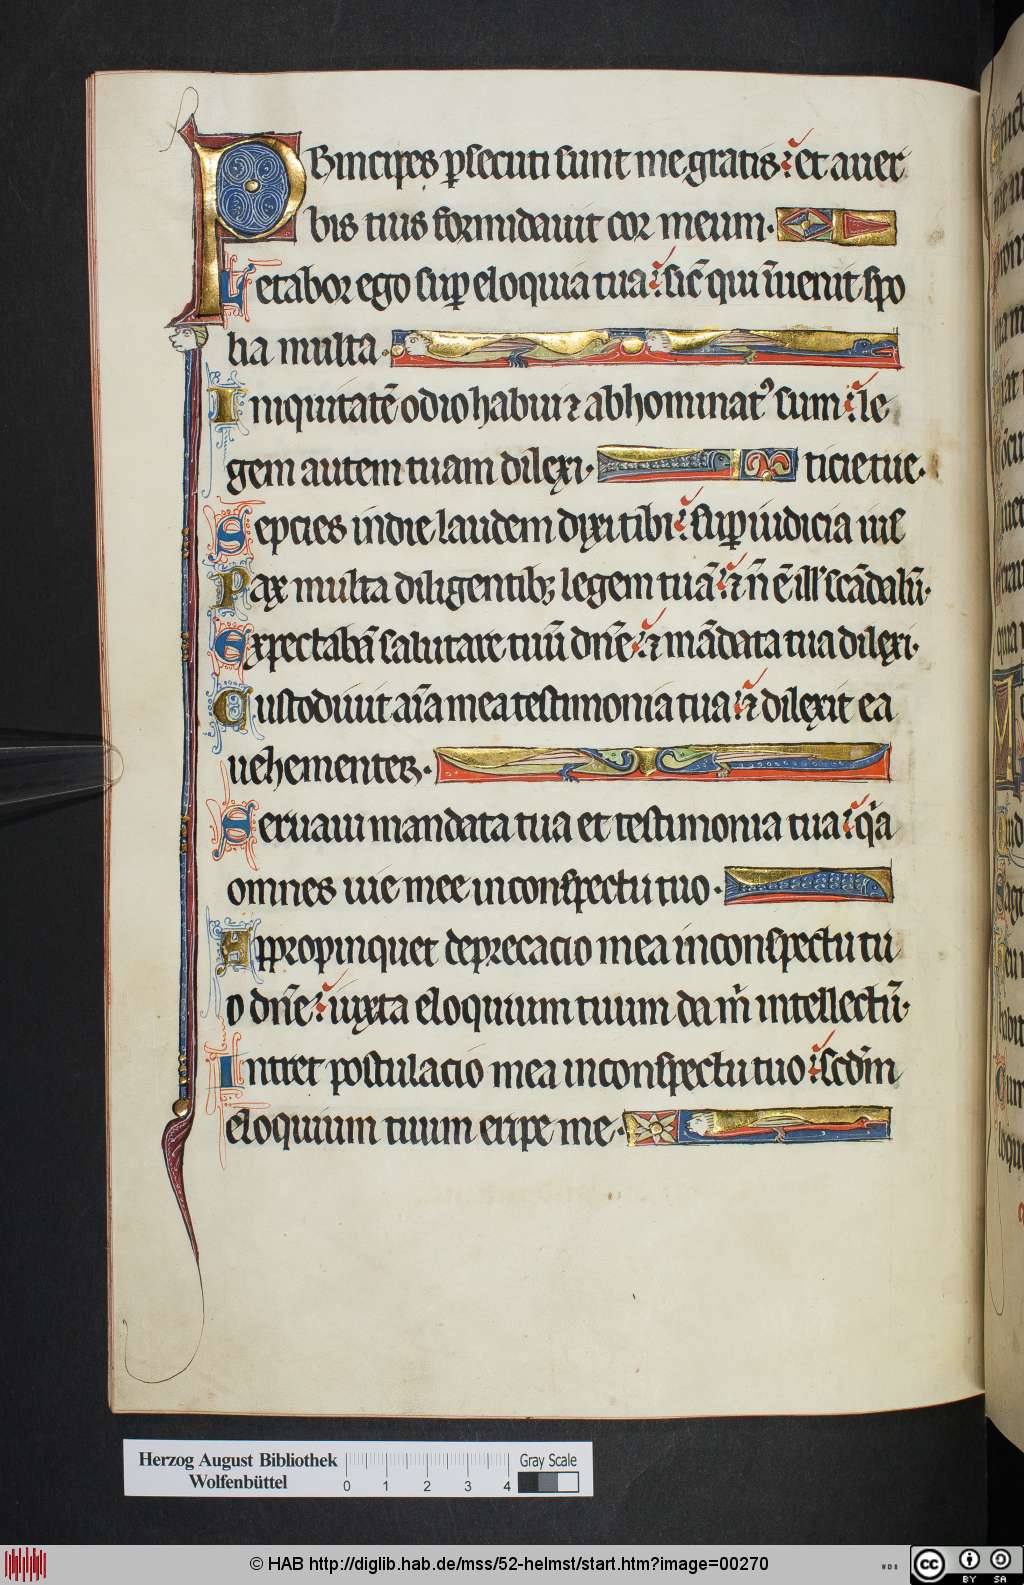 Principes ꝑsecuti sunt me gratis et a uer
bis tuis formidauit cor meum.
Letabor ego suꝑ eloquia tua sic̄ qui īuenit spo
lia multa.
Iniquitatē odio habui ⁊ abhominatꝰ sum le
gem autem tuam dilexi. ticie tue.
Septies in die laudem dixi tibi suꝑ iudicia ius
Pax multa diligentibꝫ legem tuā ⁊ n̄ ē ill' scādalū.
Expectabā salutare tuū dn̄e ⁊ mādata tua dilexi.
Custodiuit aīa mea testimonia tua ⁊ dilexit ea
uehementer.
Seruaui mandata tua et testimonia tua q̄a
omnes uie mee in conspectu tuo.
Appropinquet deprecacio mea in conspectu tu
o dn̄e iuxta eloquium tuum da m̄ intellectū.
Intret postulacio mea in conspectu tuo scdm̄
eloquium tuum eripe me.
Herzog August Bibliothek
Wolfenbüttel
0 1 2 3 4
Gray Scale
© HAB http://diglib.hab.de/mss/52-helmst/start.htm?image=00270
WDB
cc BY SA